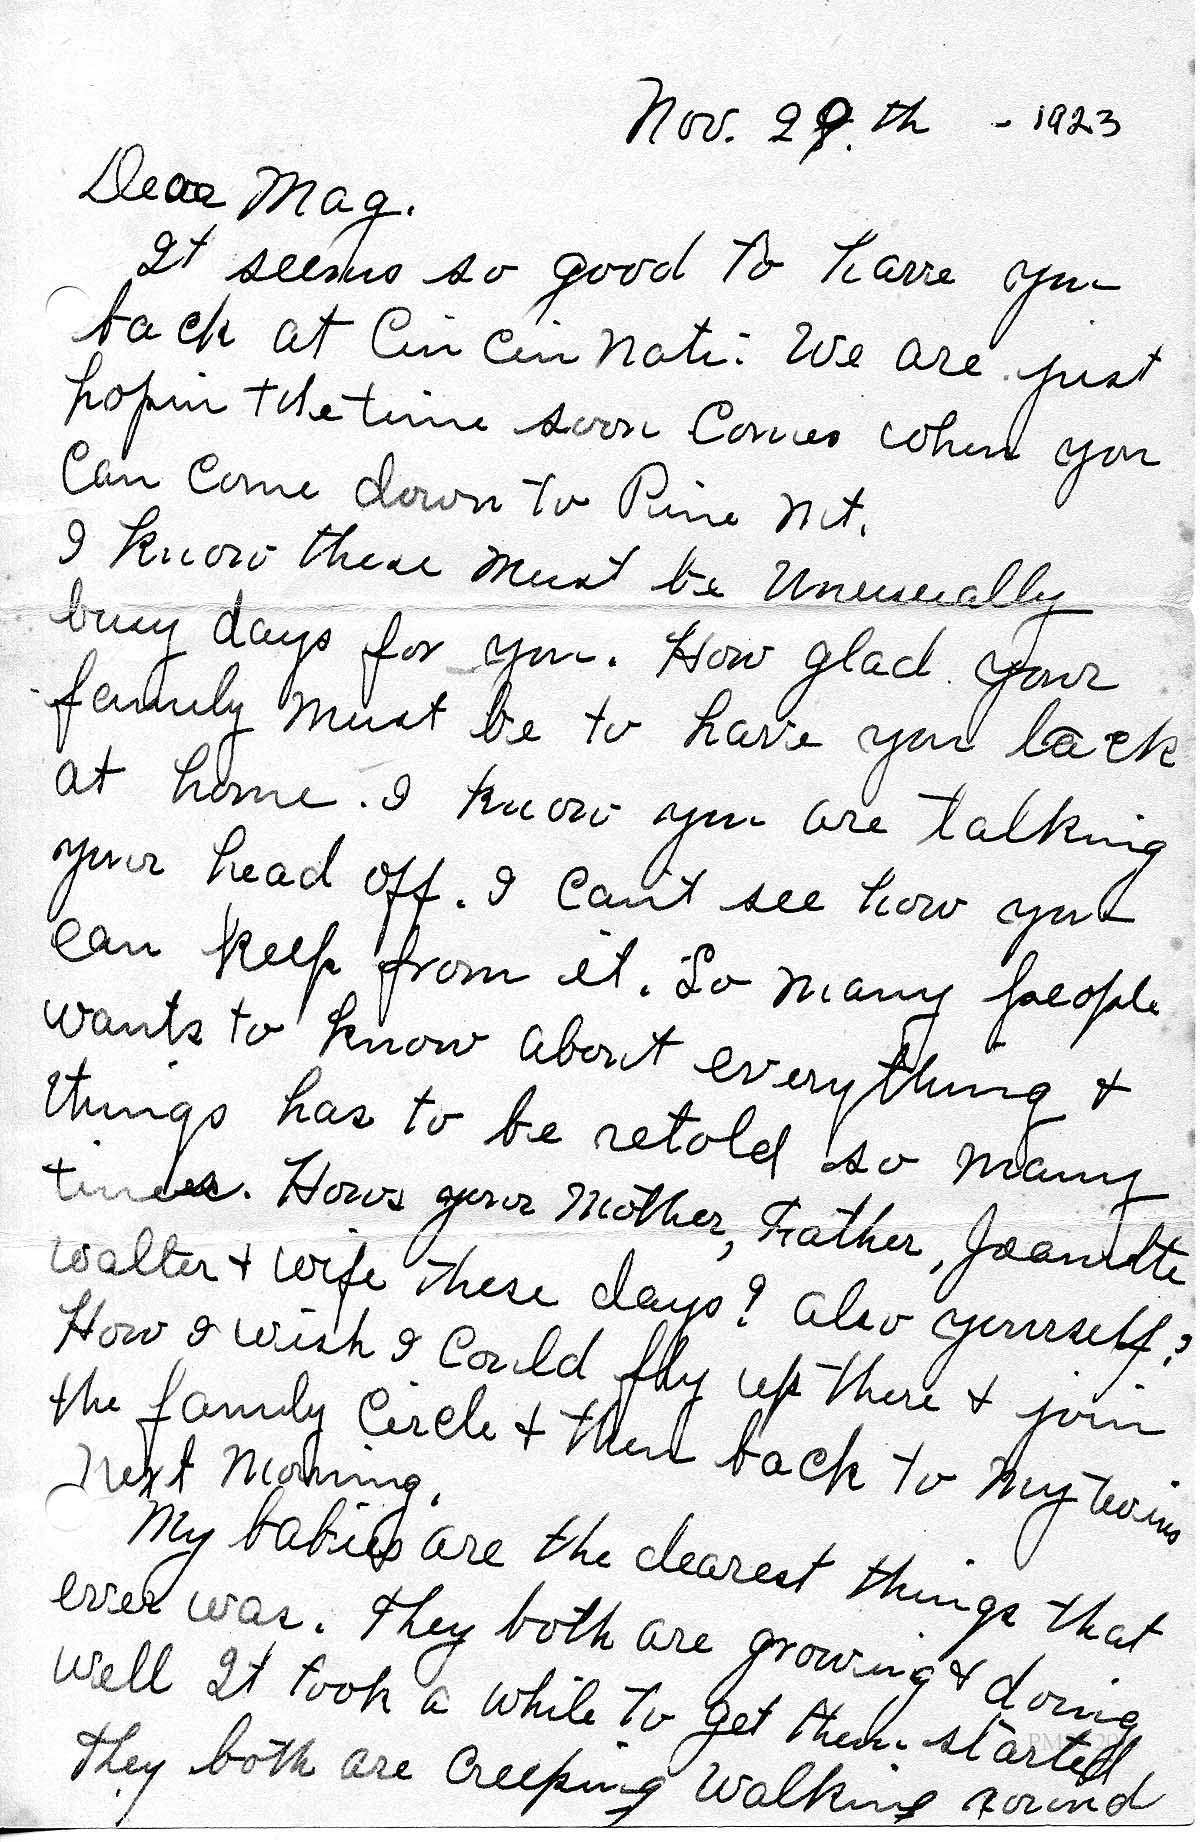 Nov. 29.th - 1923
Dear Mag.
It seems so good to have you
back at Cincinnati. We are just
hopin the time soon comes when you
can come down to Pine Mt.
I know these must be Unusually
busy days for you. How glad your
family must be to have you back
at home. I know you are talking
your head off. I can't see how you
can keep from it. So many people
wants to know about everything &
things has to be retold so many
times. Hows your Mother, Father,
Walter & wife these days? also yourself?
How I wish I could fly up there & join
the family circle & then back to my twins
next morning.
My babies are the dearest things that
ever was. They both are growing & doing
well It took a while to get them started
They both are creeping walking round